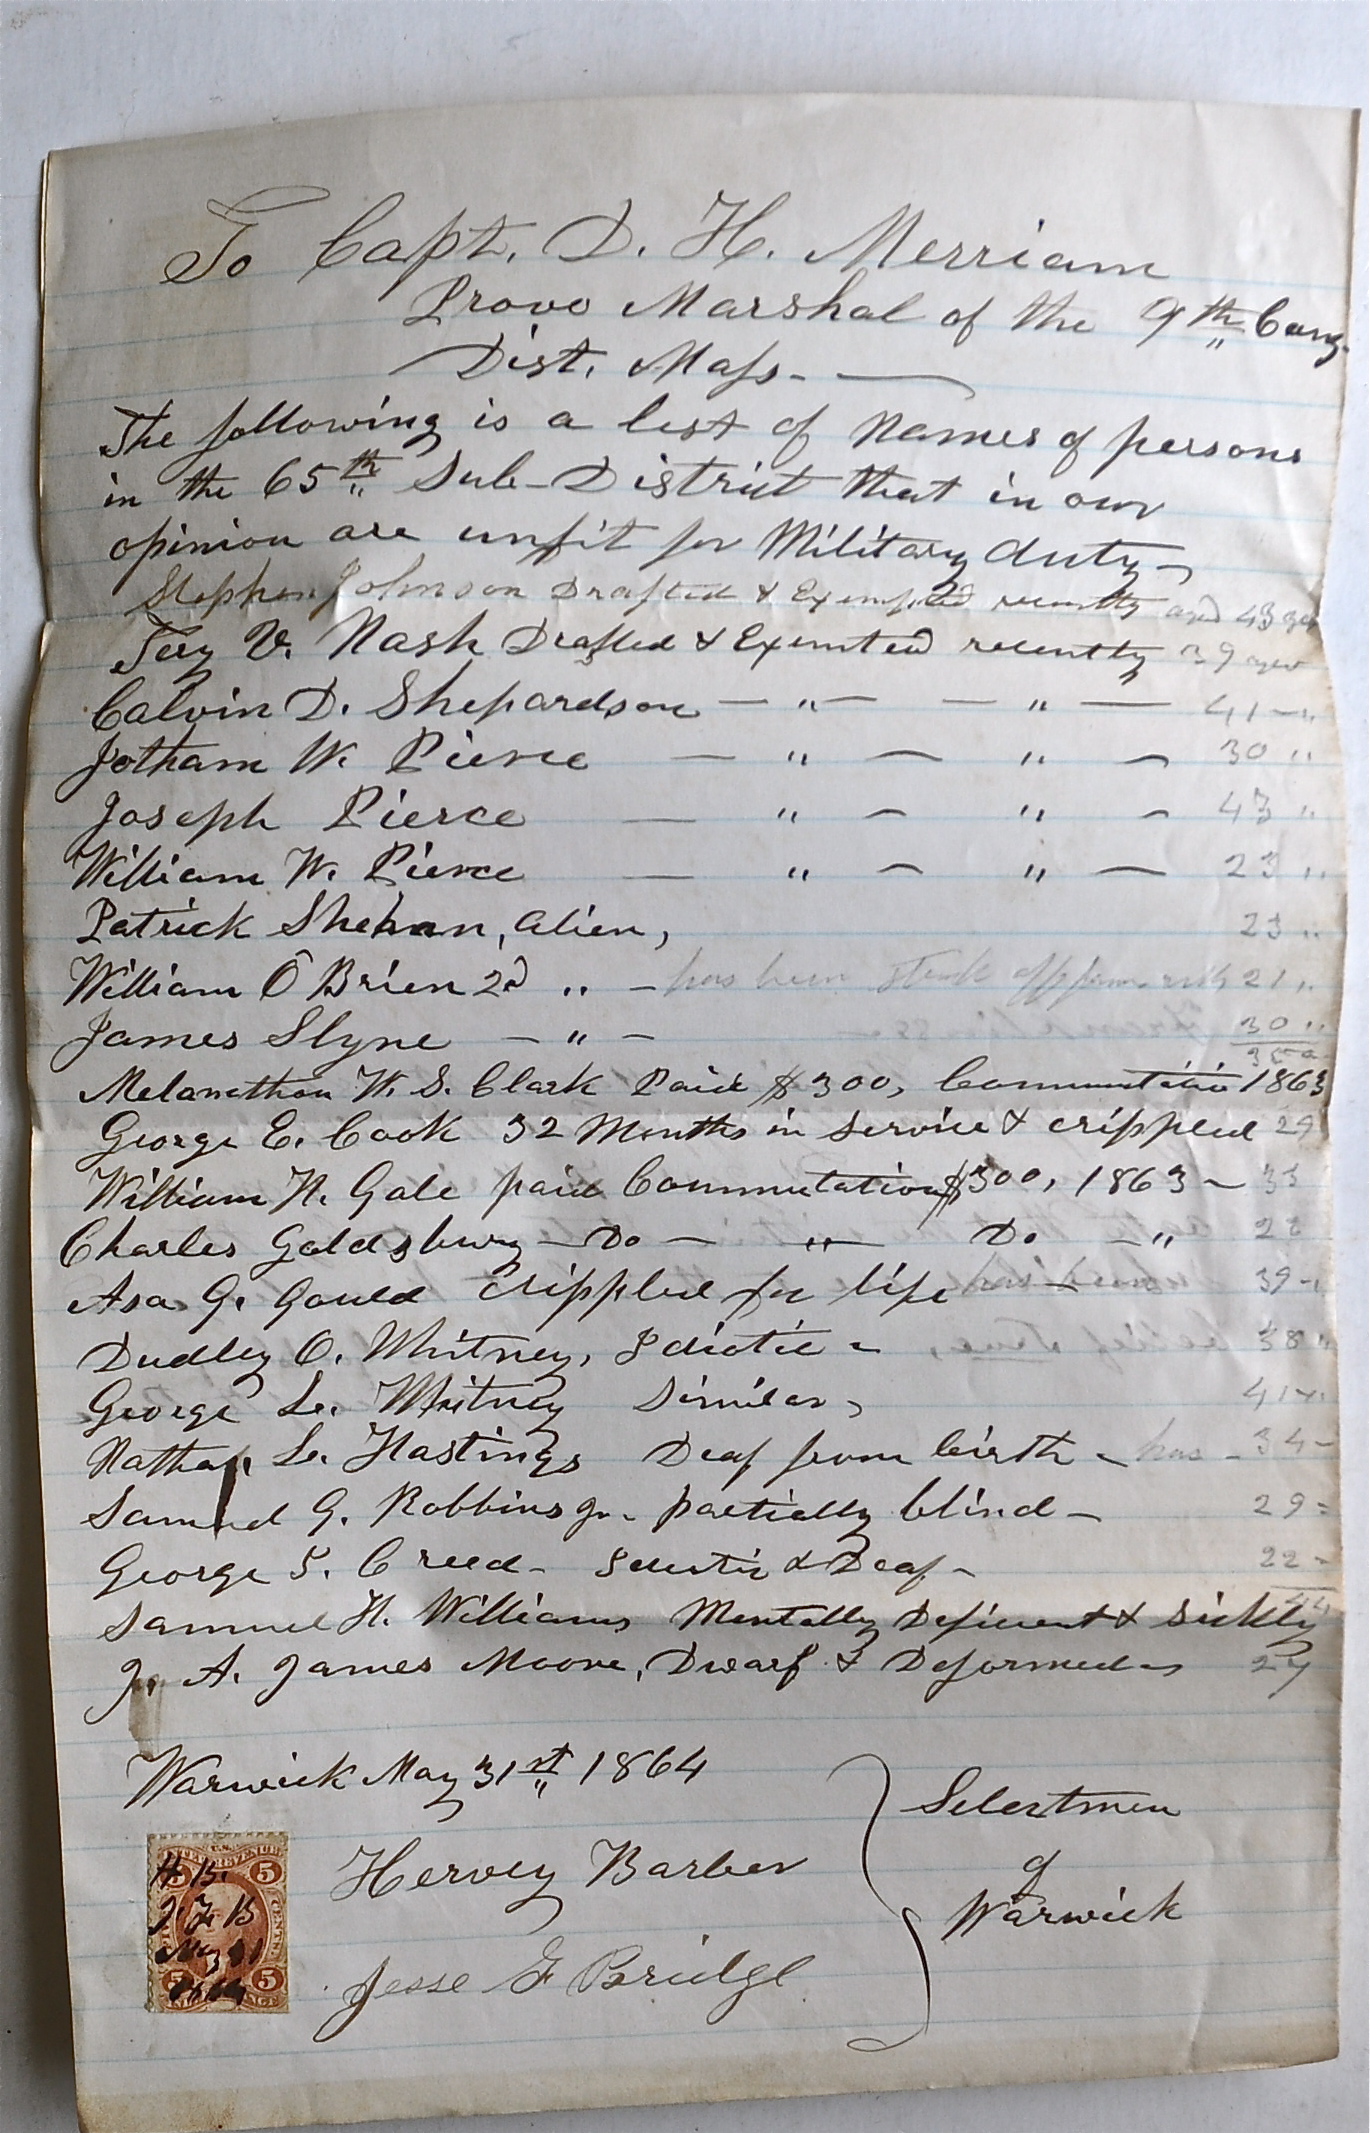 To Capt. D. H. Merriam
Provo Marshal of the 9th Cong.
Dist. Mass.
The following is a list of Names of persons
in the 65th Sub-District that in our
opinion are unfit for Military duty
Stephen Johnson Drafted & Exempted recently aged 43
V. Nash Drafted & Exemted recently 39
Calvin D. Shepardson — " — — " — 41 "
Jotham W. Pierce — " — " — 30 "
Joseph Pierce — " — " — 43 "
William W. Pierce — " — " — 23 "
Patrick Shehan, Alien, 23 "
William O Brien 2d " — has been 21 "
James Slyne — " — 30 "
35
Melancthon W. S. Clark Paid $300, Commutation 1863
George E. Cook 32 Months in service & crippled 29
William H. Gale paid Commutation $300, 1863 — 33
Charles Goldsbury — Do — " — Do — " 22
Asa G. Gould Crippled for life 39
Dudley O. Whitney, Idiotic — 38 "
George L. Whitney Similar, 41
Nathan L. Hastings Deaf from birth — has — 34
Samuel G. Robbins Jr. partially blind — 29
George S. Creed — Idiotic & Deaf — 22
44
Samuel H. Williams Mentally Deficient & sickly
J. A. James Moore, Dwarf & Deformed — 27
Warwick May 31st 1864
Selectmen
Hervey Barber
of
Warwick
Jesse F Bridge
U.S.
INTER. REVENUE
5 5
H. B.
J. F. B
May 31
1864
5 5